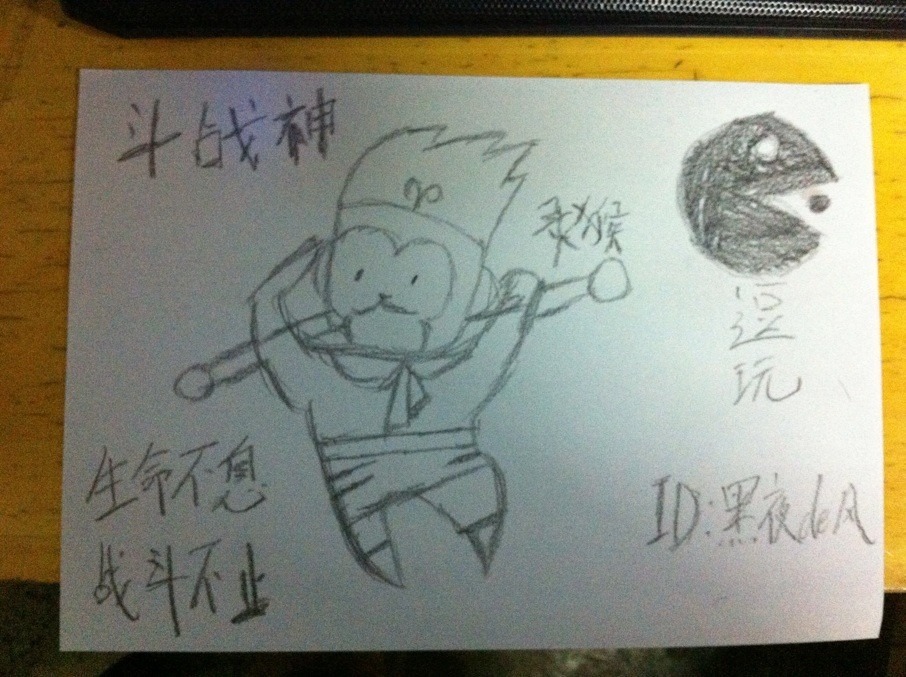 斗战神
灵猴
逗玩
生命不息
战斗不止
ID:黑夜de风